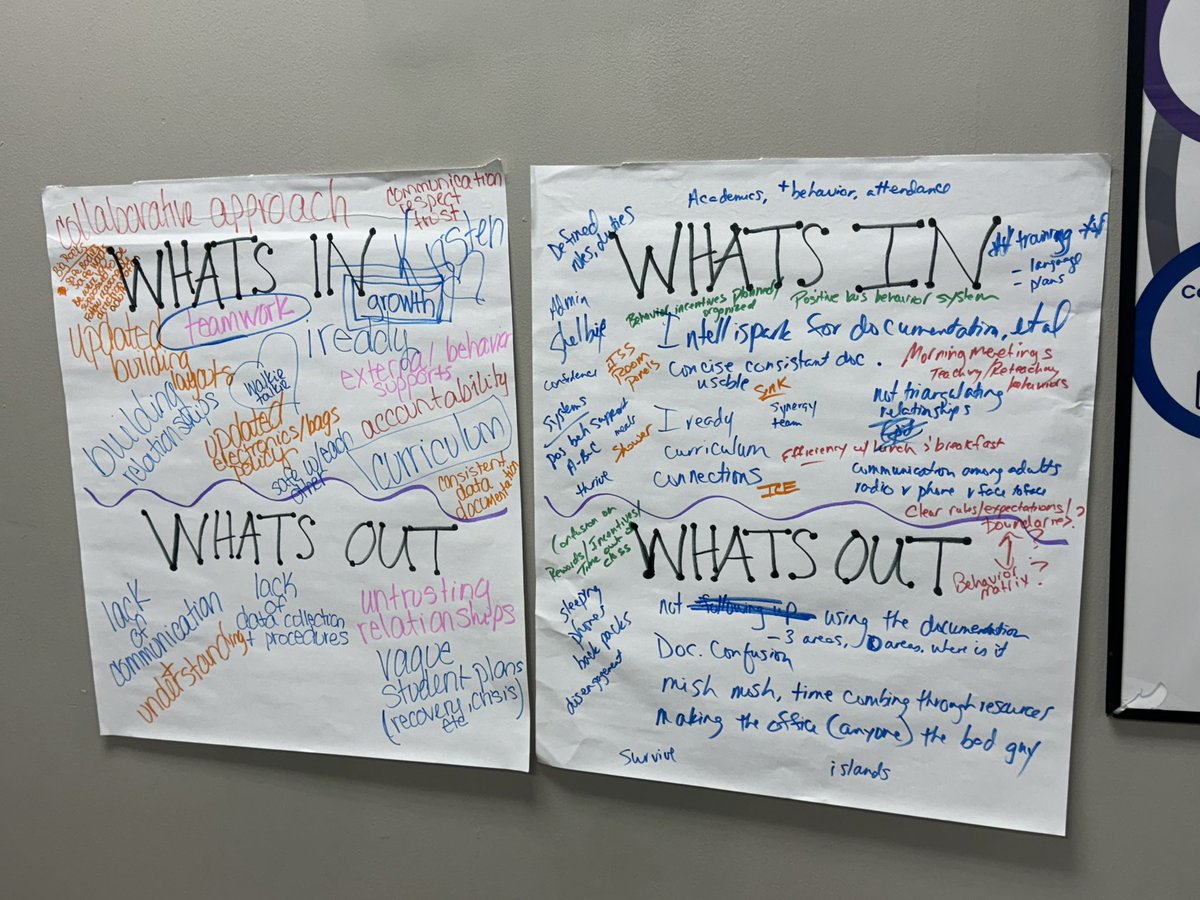 collaborative approach
communication
respect
trust
WHATS IN
Kirsten
growth
teamwork
updated
building
layouts
iready
walkie
talkie
external behavior
supports
building
relationships
updated
electronics/bags
policy
accountability
curriculum
safe w/each
other
consistent
data
documentation
WHATS OUT
lack
of
communication
understanding
lack
of
data collection
+ procedures
untrusting
relationships
vague
student plans
(recovery, crisis)
etc
Academics, + behavior, attendance
Defined
roles, duties
WHATS IN
training
- language
- plans
Admin
Behavior incentives planned/
organized
Positive bus behavior system
Intellispark for documentation, et al
ISS
Room
concise consistant doc.
usable
Morning meetings
Teaching/Reteaching
behaviors
confidence
not triangulating
relationships
Systems
pos beh support
A-B-C
meals
Shower
I ready
synergy
team
curriculum
Efficiency w/ lunch & breakfast
connections
ICE
communication among adults
radio v phone v face to face
thrive
Clear rules/expectations/?
boundaries?
Behavior
matrix?
Confusion on
Rewards/Incentives/
Time out of
class
WHATS OUT
not following up using the documentation
- 3 areas, areas, where is it
Doc. Confusion
mish mush, time combing through resources
making the office (anyone) the bad guy
sleeping
phones
back packs
disengagement
survive
islands